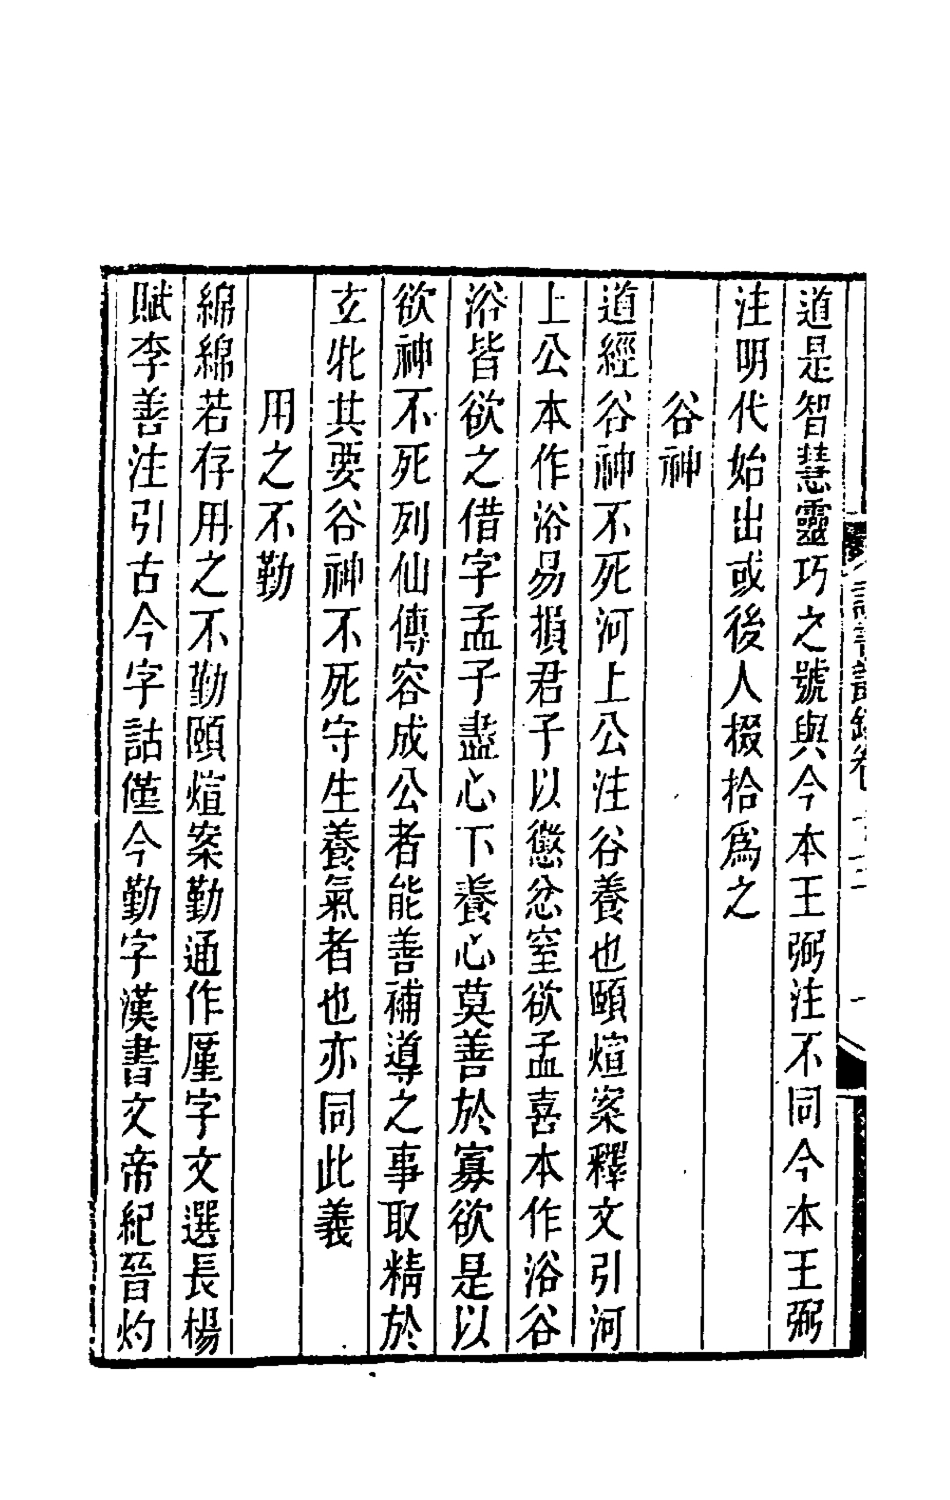 道是智慧靈巧之號與今本王弼注不同今本王弼
注明代始出或後人掇拾爲之
谷神
道經谷神不死河上公注谷養也頤煊案釋文引河
上公本作浴易損君子以懲忿窒欲孟喜本作浴谷
浴皆欲之借字孟子盡心下養心莫善於寡欲是以
欲神不死列仙傳容成公者能善補導之事取精於
玄牝其要谷神不死守生養氣者也亦同此義
用之不勤
綿綿若存用之不勤頤煊案勤通作厪字文選長楊
賦李善注引古今字詁僅今勤字漢書文帝紀晉灼